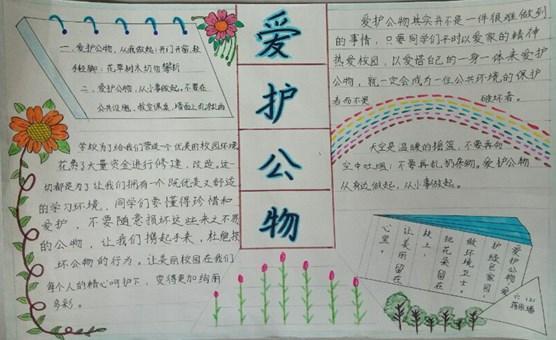 爱
护
公
物
一、爱护公物，从我做起：开门开窗，轻
手轻脚；花草树木切勿攀折
二、爱护公物，从小事做起，不要在
公共设施、教室课桌、墙面上乱涂乱画
学校为了给我们营造一个优美的校园环境，
花费了大量资金进行修建、改造。这一
切都是为了让我们拥有一个既优美又舒适
的学习环境。同学们要懂得珍惜和
爱护，不要随意损坏这些来之不易
的公物，让我们携起手来，杜绝损
坏公物的行为。让美丽校园在我们
每个人的精心呵护下，变得更加绚丽
多彩。
爱护公物其实并不是一件很难做到
的事情，只要同学们平时以爱家的精神
热爱校园，以爱惜自己的一身一体来爱护
公物，就一定会成为一位公共环境的保护
者而不是 破坏者。
天空是温暖的摇篮，不要再向
空中吐烟；不要再乱扔杂物。爱护公物
从身边做起，从小事做起。
爱护公物爱
护绿色家园，
做环境卫士。
把花朵留在
枝上，
让美丽留在
心里。